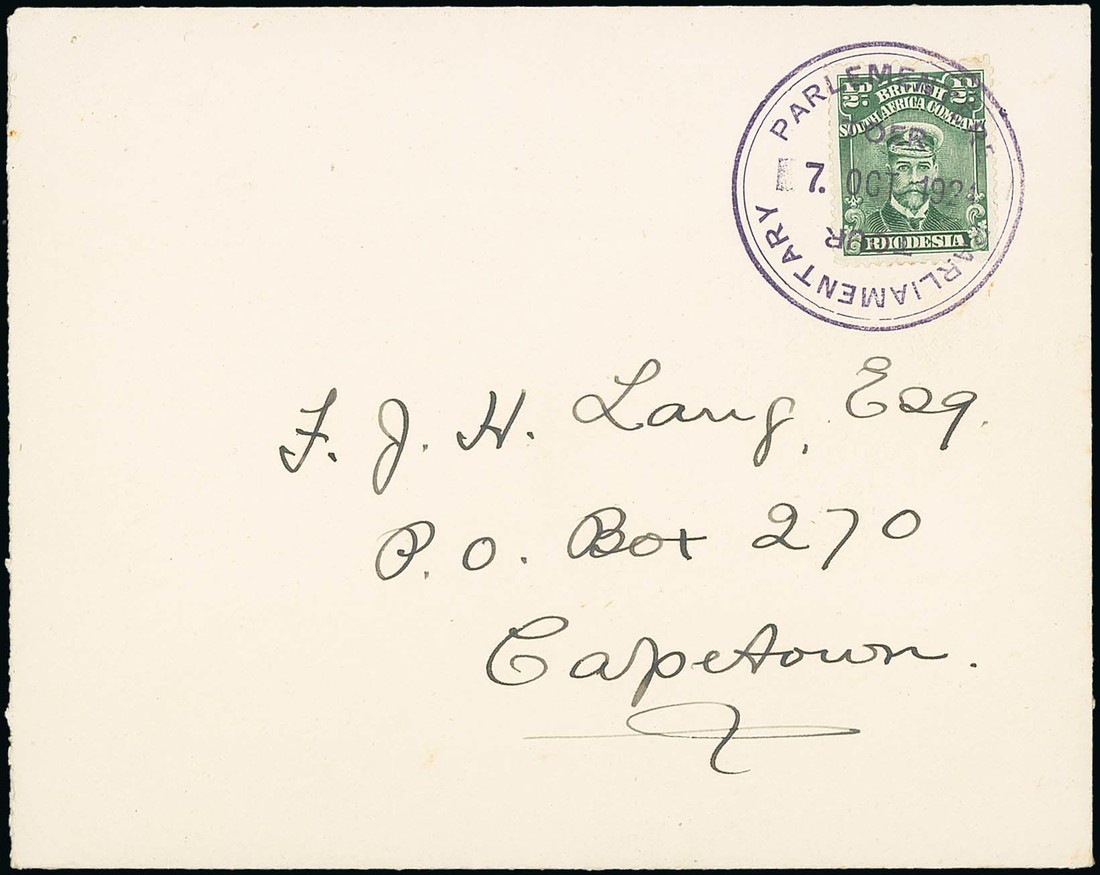 PARLEMEN
TOER
7. OCT 192
TOUR
PARLIAMENTARY
½D. ½D.
BRITISH
SOUTH AFRICA COMPANY
RHODESIA
F. J. H. Lang, Esq.
P. O. Box 270
Capetown.